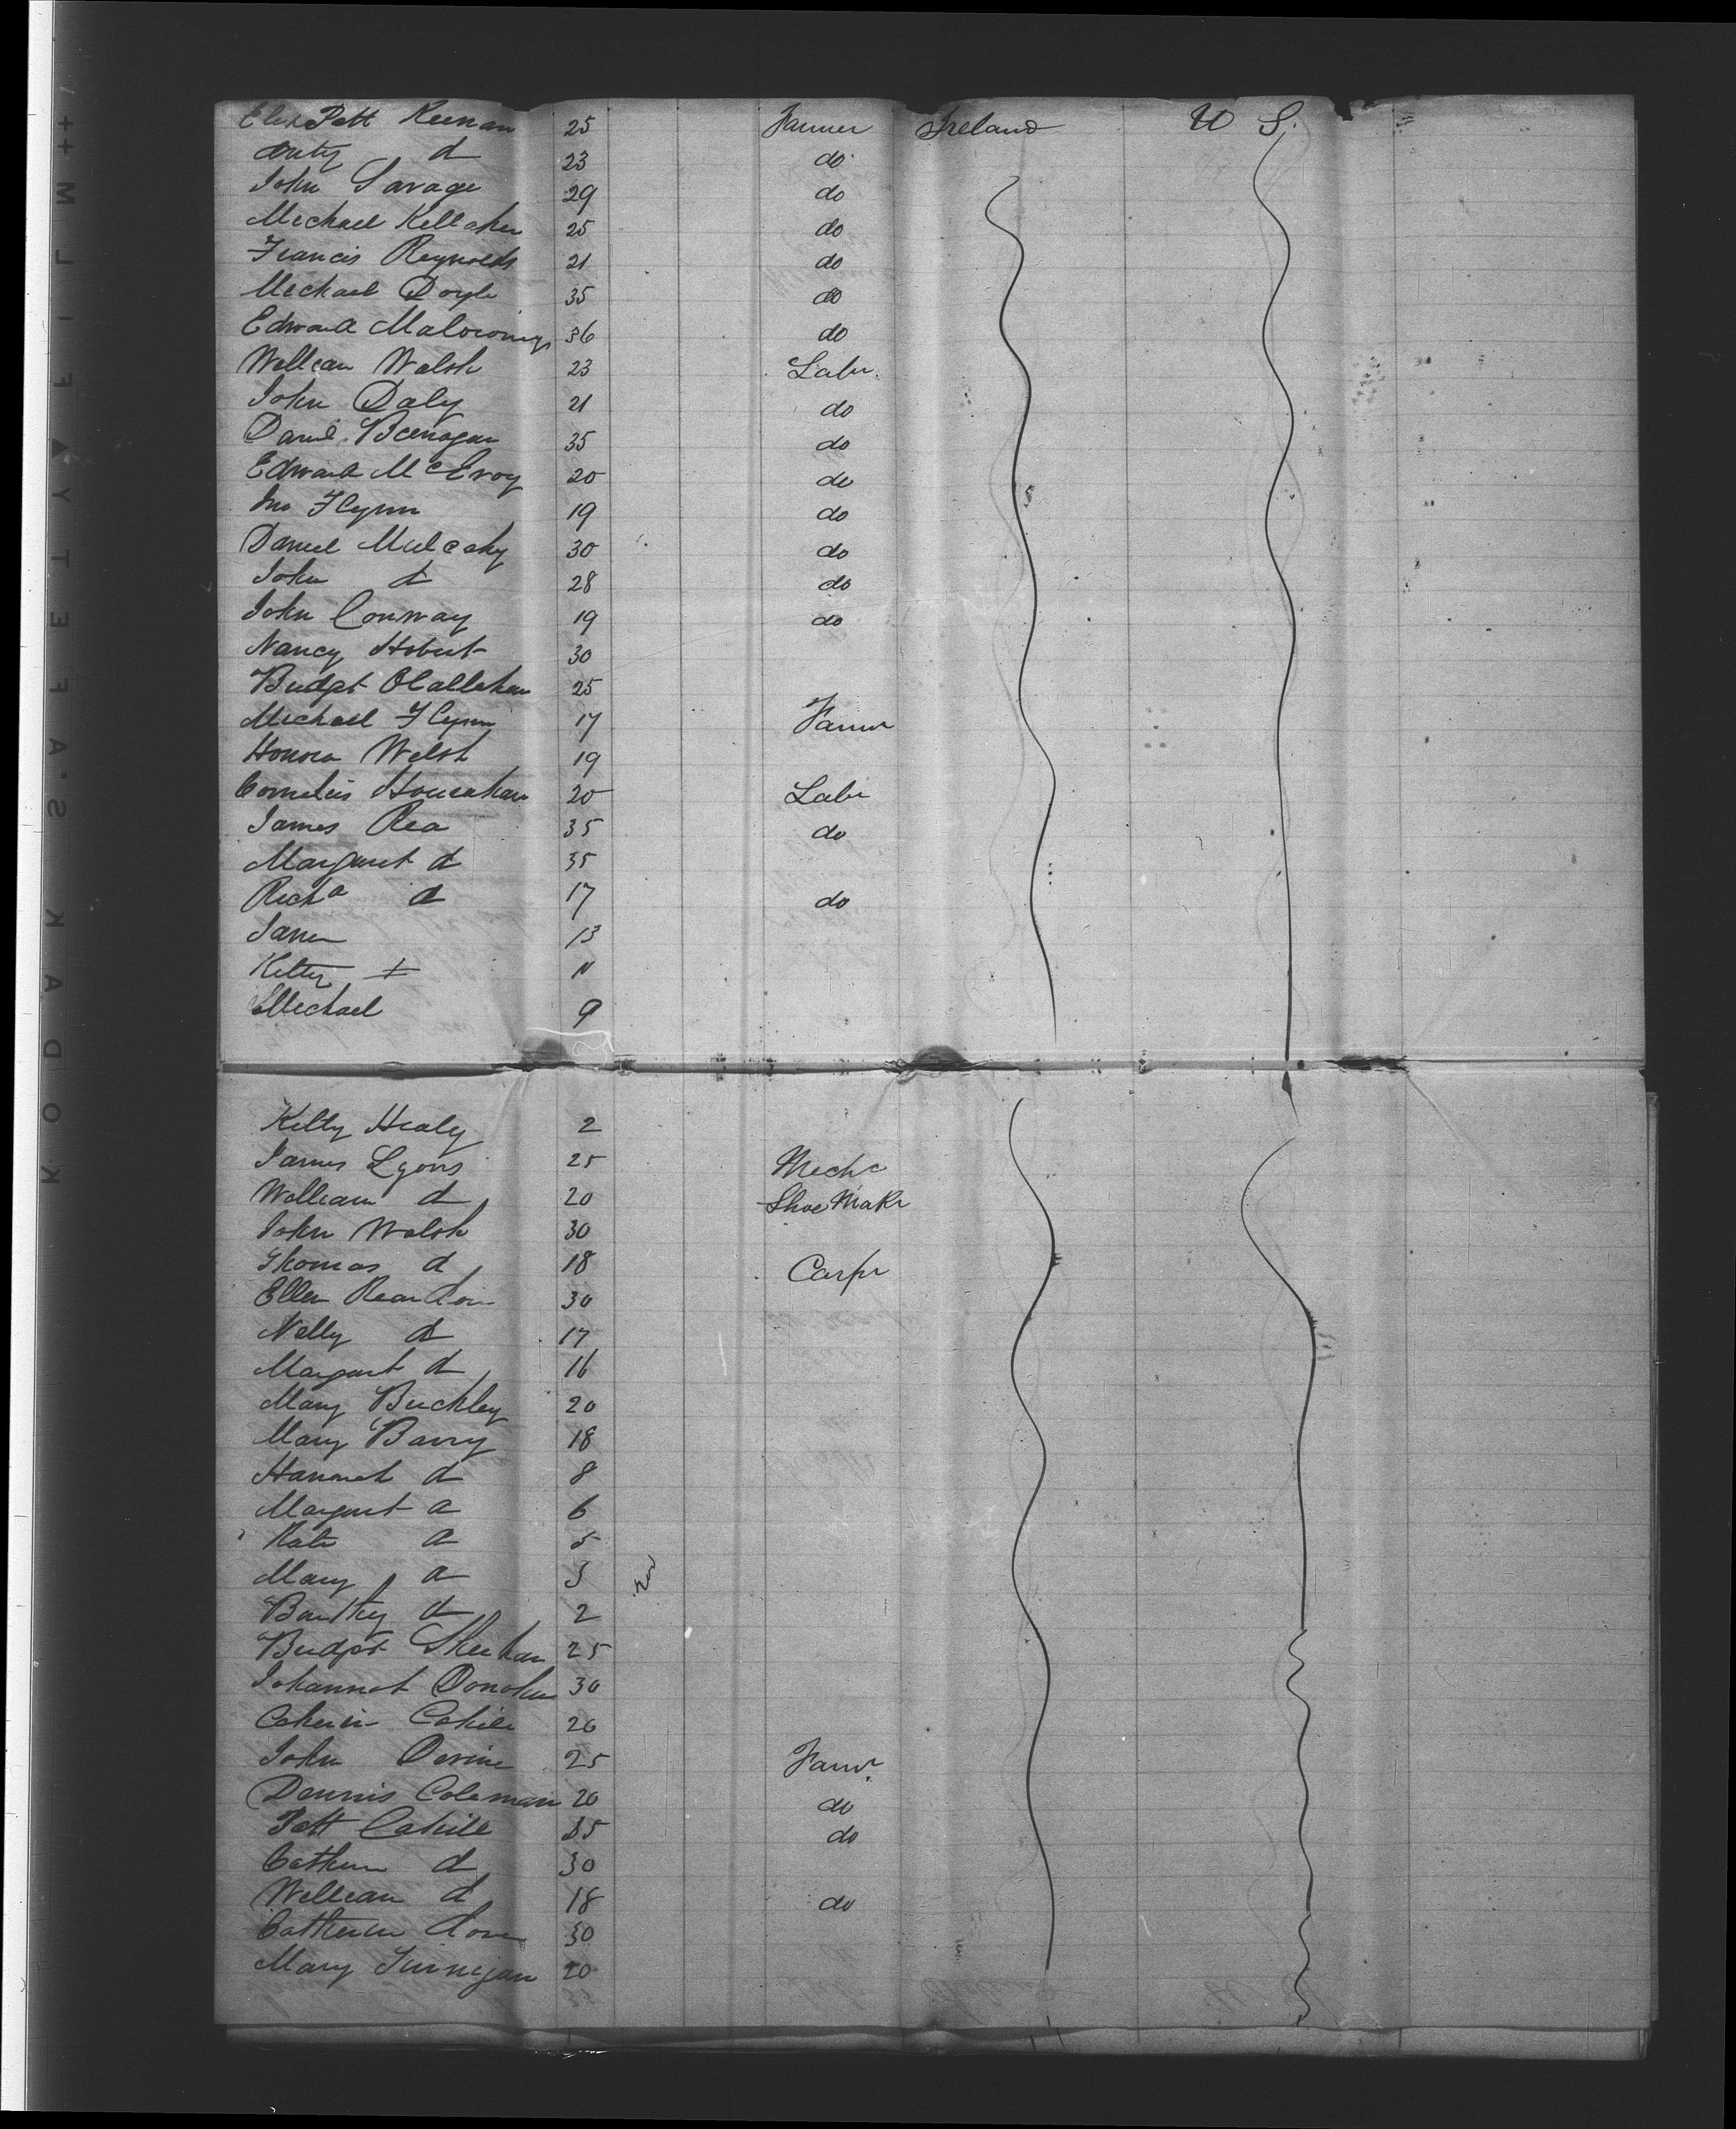 Patt Keenan 25 Farmer Ireland U S.
d 23 do
John Savage 29 do
Michael Kellaher 25 do
Francis Reynolds 21 do
Michael Doyle 35 do
Edward 36 do
William Walsh 23 Labr.
John Daly 21 do
Danl. 35 do
Edward McEvoy 20 do
Jno Flynn 19 do
Daniel Mulcahy 30 do
John d 28 do
John Conway 19 do
Nancy 30
Bridget OCallahan 25
Michael Flynn 17 Farmr
Honora Walsh 19
Cornelius Hourahan 20 Labr
James Rea 35 do
Margaret d 35
Richd d 17 do
James 13
Kitty 11
Michael 9
Kitty Healy 2
James Lyons 25 Mechc
William d 20 Shoe Makr
John Walsh 30
Thomas d 18 Carpr
Ellen Reardon 30
Nelly d 17
Margaret d 16
Mary Buckley 20
Mary Barry 18
Hannah d 8
Margaret d 6
Kate d 5
Mary d 3
Bartley d 2
Bridget Sheehan 25
Johannah Donohue 30
Catherine Cahill 26
John Devine 25 Farmr.
Dennis Coleman 20 do
Patt Cahill 35 do
Catherine d 30
William d 18 do
Catherine 30
Mary Finnegan 20
KODAK · SAFETY